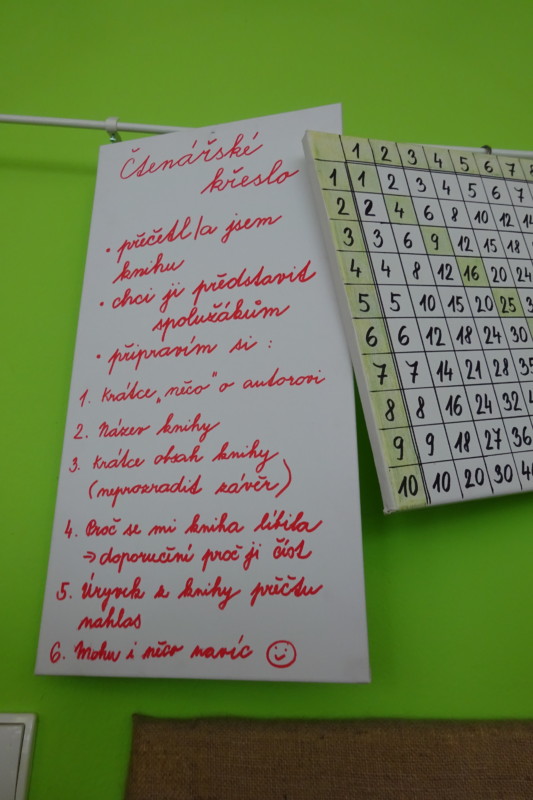 Čtenářské
křeslo
• přečetl/a jsem
knihu
• chci ji představit
spolužákům
• připravím si :
1. Krátce „něco" o autorovi
2. Název knihy
3. Krátce obsah knihy
(neprozradit závěr)
4. Proč se mi kniha líbila
⇒ doporučení proč ji číst
5. Úryvek z knihy přečtu
nahlas
6. Mohu i něco navíc ☺
1 2 3 4 5 6 7
1 1 2 3 4 5 6 7
2 2 4 6 8 10 12 14
3 3 6 9 12 15 18
4 4 8 12 16 20 24
5 5 10 15 20 25
6 6 12 18 24 30
7 7 14 21 28 35
8 8 16 24 32
9 9 18 27 36
10 10 20 30